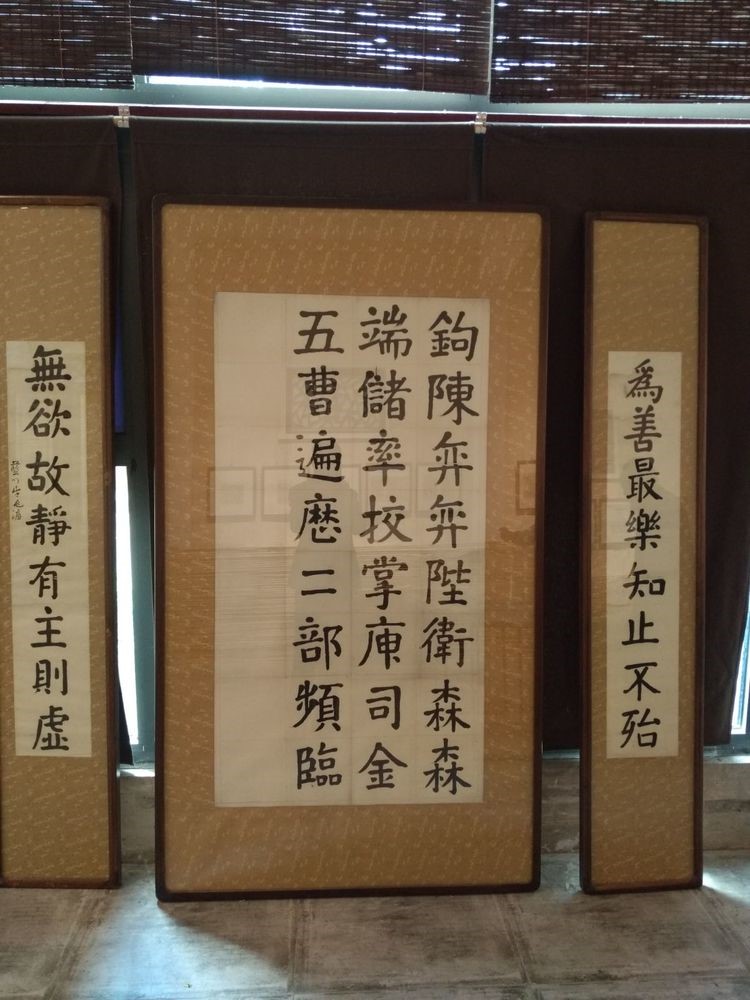 為善最樂知止不殆
鉤陳弈弈陛衛森森
端儲率校掌庾司金
五曹遍歷二部頻臨
無欲故靜有主則虛